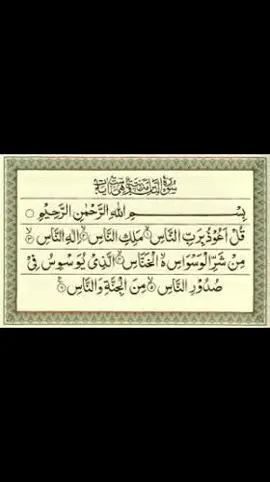 سورة الناس مدنية وهي ست آيات
بِسْمِ اللهِ الرَّحْمٰنِ الرَّحِيْمِ
قُلْ اَعُوْذُ بِرَبِّ النَّاسِ ۱ مَلِكِ النَّاسِ ۲ اِلٰهِ النَّاسِ ۳
مِنْ شَرِّ الْوَسْوَاسِ ەۙ الْخَنَّاسِ ۴ الَّذِیْ یُوَسْوِسُ فِیْ
صُدُوْرِ النَّاسِ ۵ مِنَ الْجِنَّةِ وَالنَّاسِ ۶